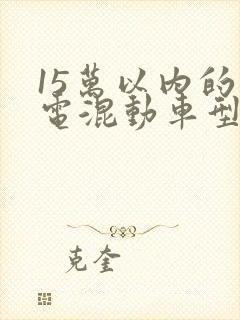 15萬以內的
電混動車型
克奎